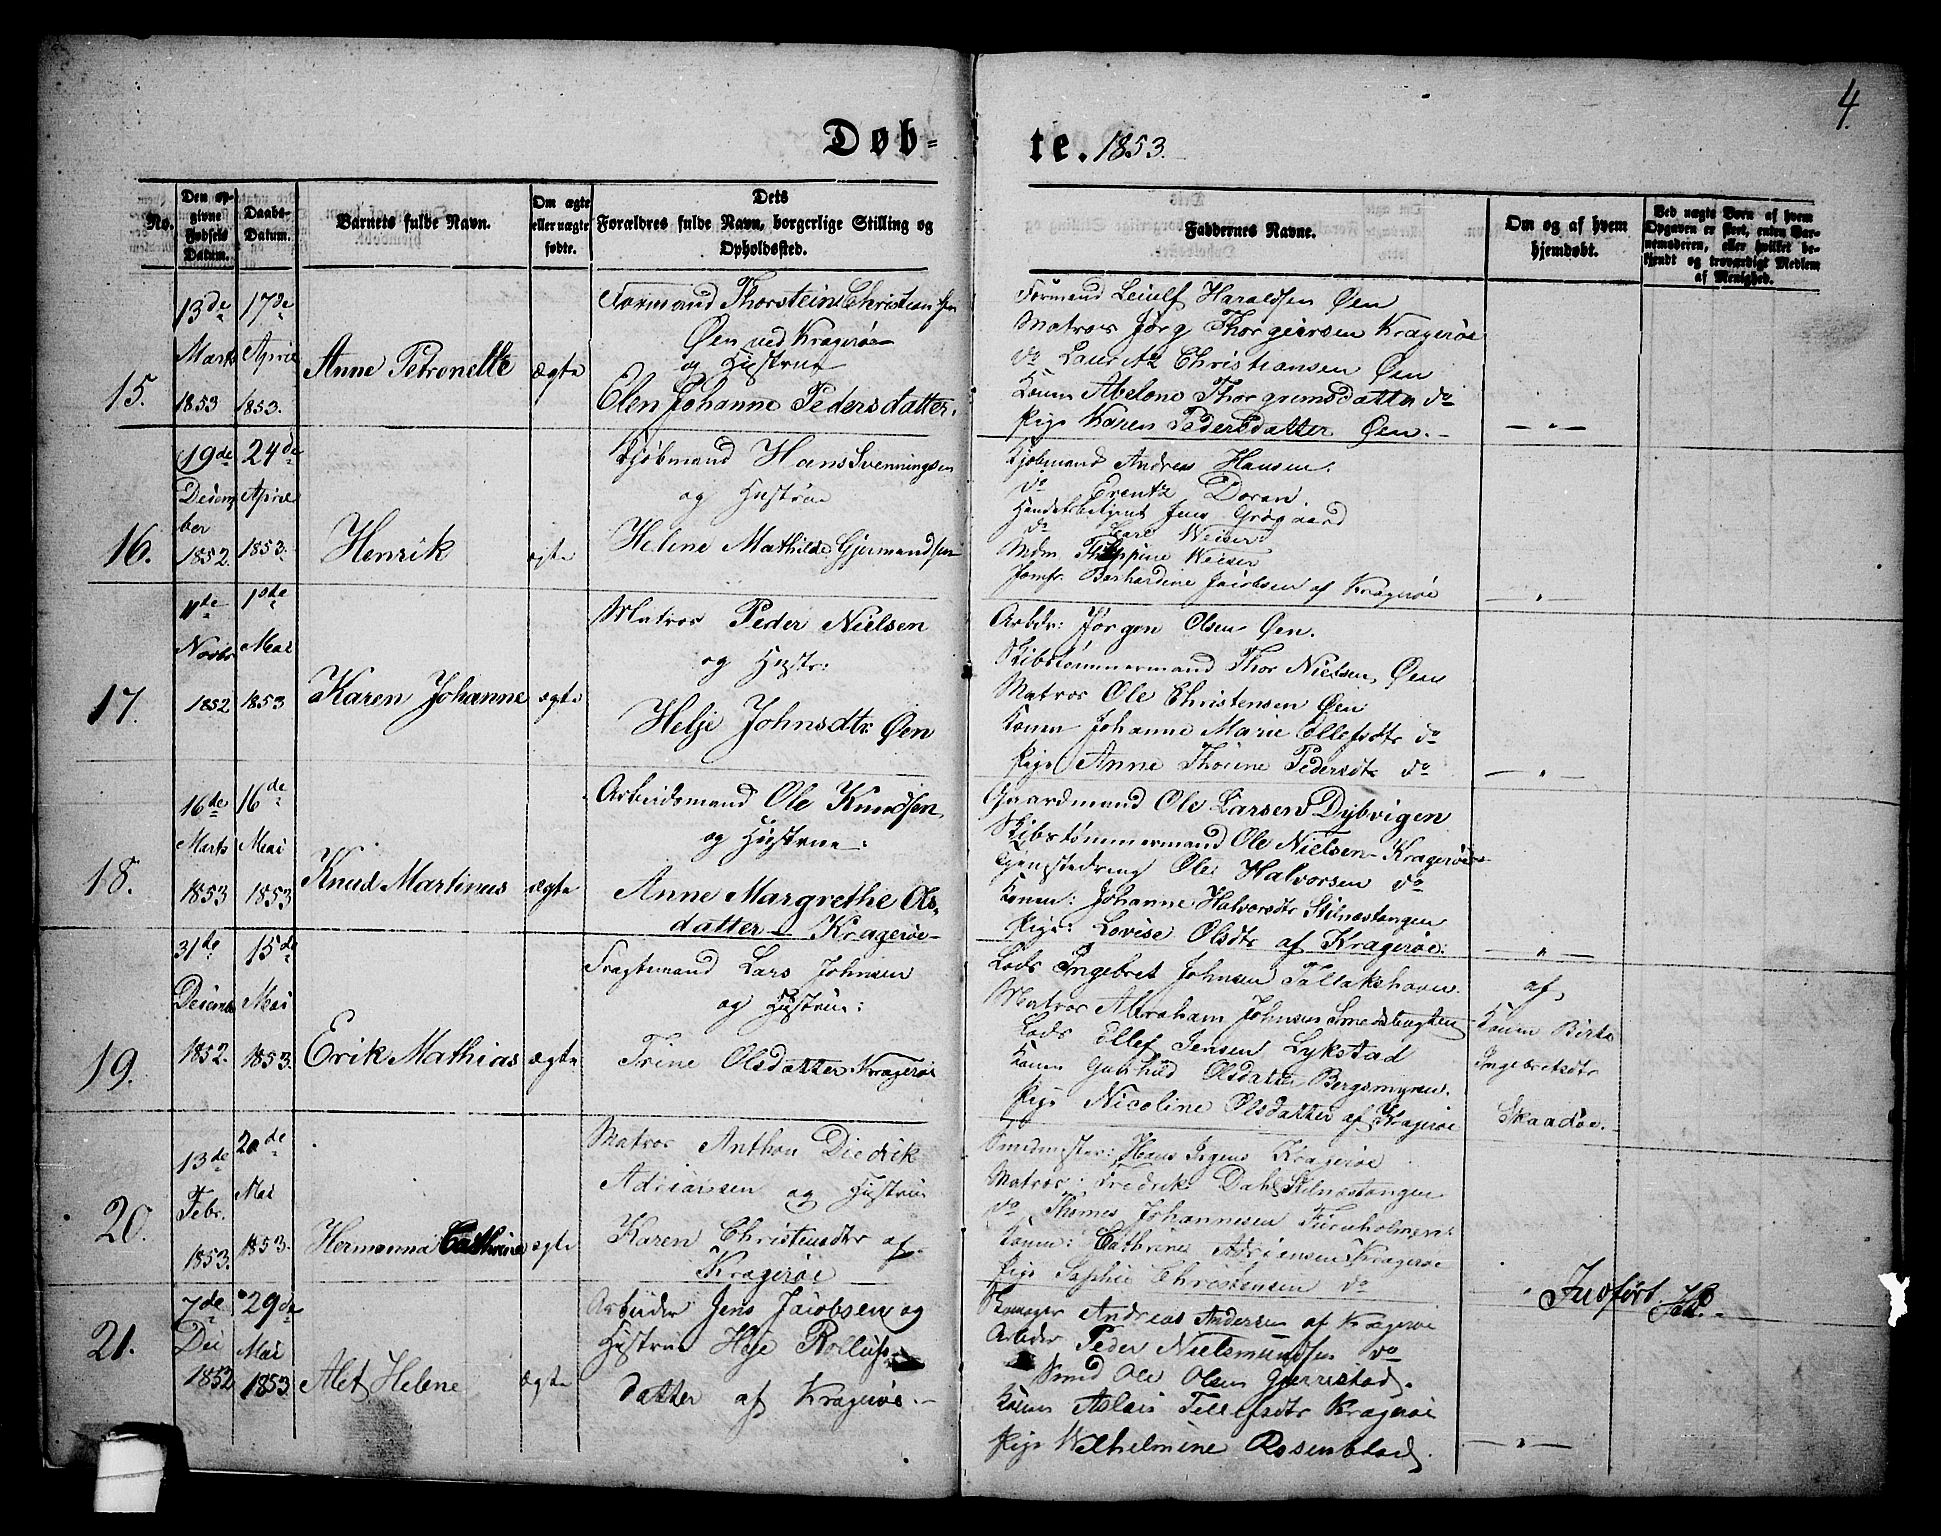 4.
Døb-
te. 1853.
No.
Den op-
givne
Fødsels
Datum.
Daabs-
Datum.
Barnets fulde Navn.
Om ægte
eller uægte
fødte.
Dets
Forældres fulde Navn, borgerlige Stilling og
Opholdssted.
Faddernes Navne.
Om og af hvem
hjemdøbt.
Ved uægte Børn af hvem
Opgaven er skeet, enten Bar-
nemoderen, eller hvilket be-
kjendt og troværdigt Medlem
af Menighed.
15.
13de
Marts
1853
17de
April
1853.
Anne Petronelle
ægte
Formand Thorstein Christiansen
Øen ved Kragerøe
og Hustrue
Elen Johanne Pedersdatter.
Formand Leiulf Haraldsen Øen
Matros Jørg Thorgiersen Kragerøe
do Lauritz Christiansen Øen
Konen Abelone Thorgrimsdatter do
Pige Karen Pedersdatter Øen.
— " —
16.
19de
Decem
ber
1852.
24de
April
1853.
Henrik
ægte
Kjøbmand Hans Svenningsen
og Hustrue
Helene Mathilde Gjermundsen
Kjøbmand Andreas Hansen.
do Erentz Doran.
Handelsbetjent Jens Grøgaard
do Carl Weiser
Mdm Weiser
Jomfr Berhardine Jacobsen af Kragerøe
— " —
17.
11de
Novbr
1852
1de
Mai
1853
Karen Johanne
ægte
Matros Peder Nielsen
og Hustr:
Helje Johnsdtr Øen
Arbdr: Jørgen Olsen Øen.
Skibstømmermand Thor Nielsen, Øen
Matros Ole Christensen Øen
Konen Johanne Marie Ellefsdtr do
Pige Anne Thorine Pedersdtr do
— " —
18.
16de
Marts
1853
16de
Mai
1853
Knud Martinus
ægte
Arbeidsmand Ole Knudsen
og Hustrue:
Anne Margrethe Ols-
datter Kragerøe
Gaardmand Ole Larsen Dybvigen
Skibstømmermand Ole Nielsen Kragerøe
Ole Halvorsen do
Konen: Johanne Halvorsdtr Stilnæstangen
Pige: Lovise Olsdtr af Kragerøe:
— " —
19.
31de
Decembr
1852.
15de
Mai
1853.
Erik Mathias
ægte
Fragtemand Lars Johnsen
og Hustrue:
Trine Olsdatter Kragerøe
Lods Ingebret Johnsen Tallakshavn.
Matros Abraham Johnsen Smedsbugten
Lods Ellef Jensen Lykstad
Konen Gunhild Olsdatter Bergsmyren.
Pige Nicoline Olsdatter af Kragerøe
af
Konen Birte
Ingebretsdtr
Skaadøe.
20.
13de
Febr.
1853.
20de
Mai
1853.
Hermanna Cathrine
ægte
Matros Anthon Diedrik
Adriansen og Hustrue
Karen Christensdtr af
Kragerøe
Smedmester: Hans Irgens Kragerøe
Matros: Fredrik Dahl Stilnæstangen
do Thomes Johannesen Furuholmen:
Konen: Cathrine Adriensen Kragerøe
Pige Sophie Christensen do
"
Indført
21.
7de
Dec
1852
29de
Mai
1853.
Alet Helene
ægte
Arbeider Jens Jacobsen og
Hustrue Helje Rollufs-
datter af Kragerøe.
Andreas Andersen af Kragerøe
Arbdr Peder Nielsmundsen do
Smed Ole Olsen Gjerrestad.
Konen Aslau Tellefsdtr Kragerøe
Pige Wilhelmine Rosenblad.
— " —